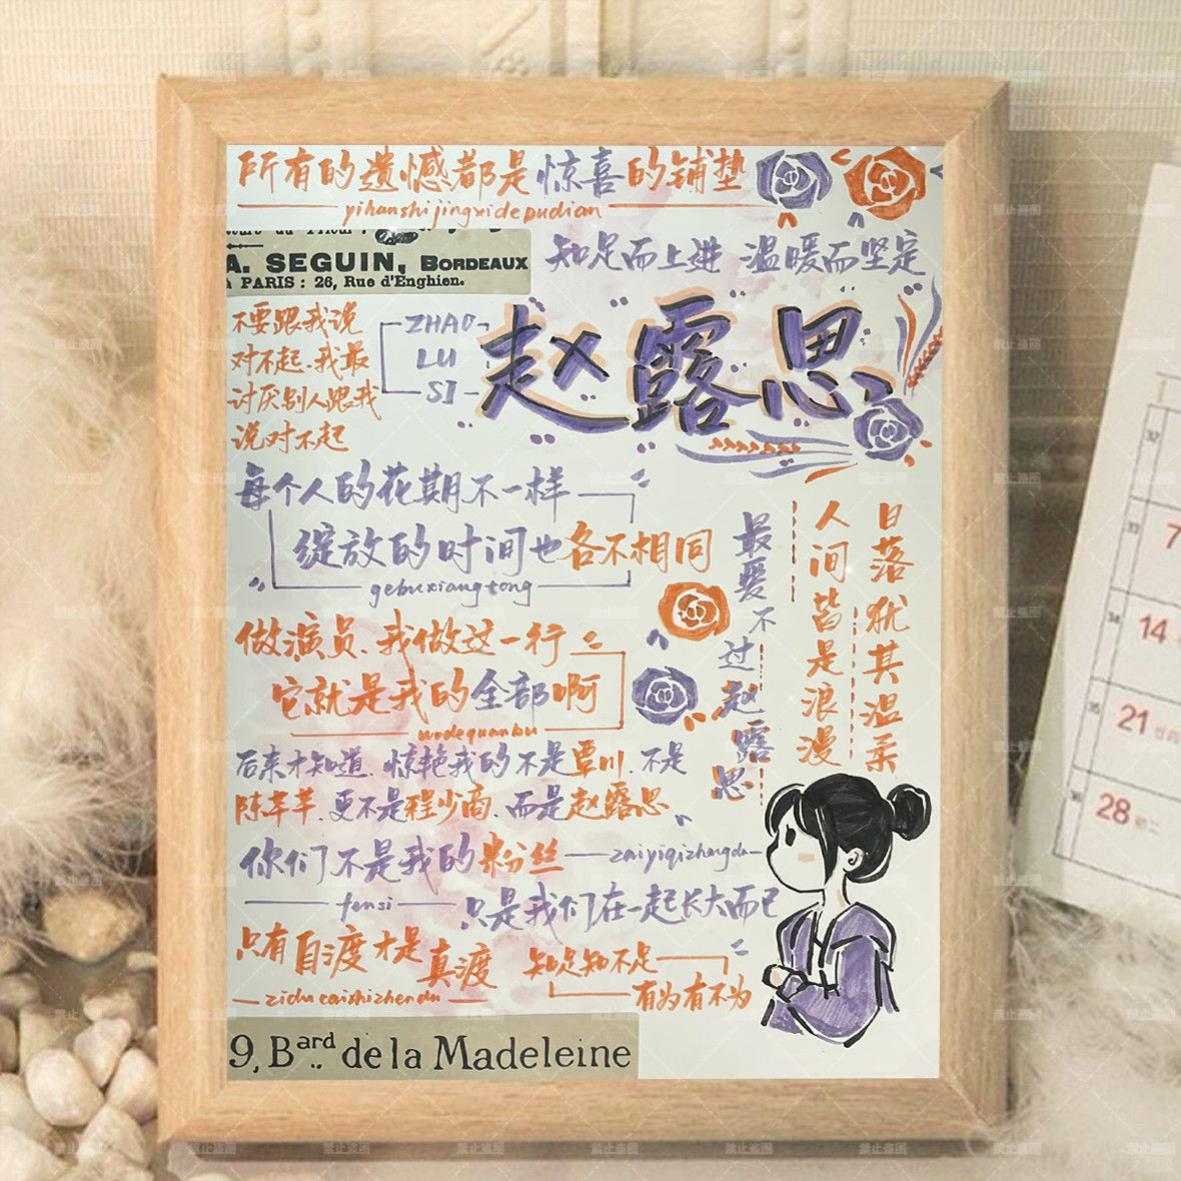 所有的遗憾都是惊喜的铺垫
yihanshijingxidepudian
A. SEGUIN, BORDEAUX
PARIS : 26, Rue d'Enghien.
知足而上进 温暖而坚定
不要跟我说
对不起.我最
讨厌别人跟我
说对不起
ZHAO
LU
SI
赵露思
每个人的花期不一样
绽放的时间也各不相同
gebuxiangtong
日落犹其温柔
人间皆是浪漫
最爱不过赵露思
做演员.我做这一行
它就是我的全部啊
wodequanbu
后来才知道.惊艳我的不是覃川.不是
陈芊芊.更不是程少商.而是赵露思
你们不是我的粉丝
zaiyiqizhangda
fensi
只是我们在一起长大而已
只有自渡才是真渡
ziducaishizhendu
知足知不足
有为有不为
9, Bard de la Madeleine
7
14
21
28
禁止盗图